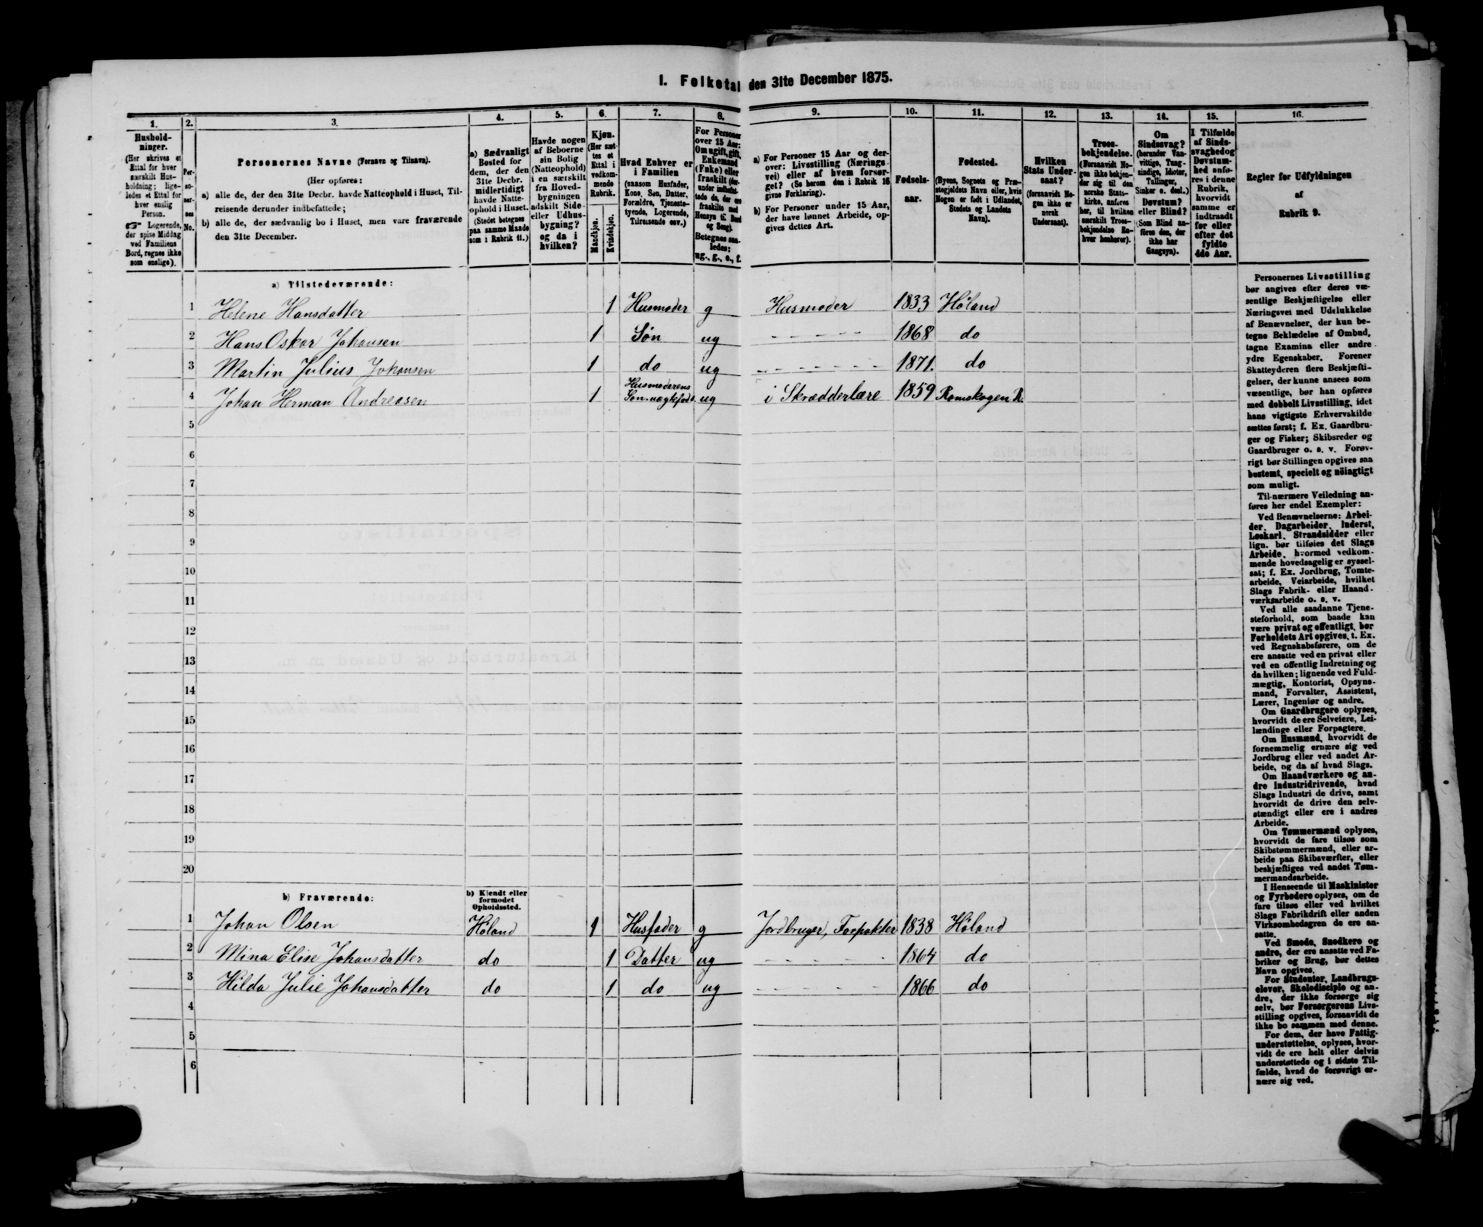 I. Folketal den 31te December 1875.
1. 2. 3. 4. 5. 6. 7. 8. 9. 10. 11. 12. 13. 14. 15. 16.
Hushold-
ninger.
(Her skrives et
Ettal for hver
særskilt Hus-
holdning; lige-
ledes et Ettal for
hver enslig
Person.
Logerende,
der spise Middag
ved Familiens
Bord, regnes ikke
som enslige).
Per-
so-
ner-
nes
No.
Personernes Navne (Fornavn og Tilnavn).
(Her opføres:
a) alle de, der den 31te Decbr. havde Natteophold i Huset, Til-
reisende derunder indbefattede;
b) alle de, der sædvanlig bo i Huset, men vare fraværende
den 31te December.
a) Sædvanligt
Bosted for
dem, der den
31te Decbr.
midlertidigt
havde Natte-
ophold i Huset.
(Stedet betegnes
paa samme Maade
som i Rubrik 11.)
Havde nogen
af Beboerne
sin Bolig
(Natteophold)
i en særskilt
fra Hoved-
bygningen
adskilt Side-
eller Udhus-
bygning?
og da i
hvilken?
Kjøn.
(Her sæt-
tes et
Ettal i
vedkom-
mende
Rubrik.
Mandkjøn.
Kvindekjøn.
Hvad Enhver er
i Familien
(saasom Husfader,
Kone, Søn, Datter,
Forældre, Tjeneste-
tyende, Logerende,
Tilreisende osv.)
For Personer
over 15 Aar:
Om ugift, gift,
Enkemand
(Enke) eller
fraskilt
Betegnes saa-
ledes:
ug., g., e., f.
a) For Personer 15 Aar og der-
over: Livsstilling (Nærings-
vei) eller af hvem forsør-
get? (Se herom den i Rubrik 16
givne Forklaring).
b) For Personer under 15 Aar,
der have lønnet Arbeide, op-
gives dettes Art.
Fødsels-
aar.
Fødested.
(Byens, Sognets og Præ-
stegjeldets Navn eller, hvis
Nogen er født i Udlandet,
Stedets og Landets
Navn).
Hvilken
Stats Under-
saat?
(forsaavidt No-
gen ikke er
norsk
Undersaat).
Troes-
bekjendelse.
(Forsaavidt No-
gen ikke bekjen-
der sig til den
norske Stats-
kirke, anføres
her, til hvilken
særskilt Troes-
bekjendelse En-
hver henhører).
Om
Sindssvag?
(herunder Van-
vittige, Tung-
sindige, Idioter,
Tullinger,
Sinker o. desl.)
Døvstum?
eller Blind?
(Som Blind an-
føres den, der
ikke har
Gangsyn).
I Tilfælde
af Sinds-
svaghed og
Døvstum-
hed anfø-
res i denne
Rubrik,
hvorvidt
samme er
indtraadt
før eller
efter det
fyldte
4de Aar.
Regler for Udfyldningen
af
Rubrik 9.
a) Tilstedeværende:
1 Helene Hansdatter 1 Husmoder g Husmoder 1833 Høland
2 Hans Oskar Johansen 1 Søn ug - - - - 1868 do
3 Martin Julius Johansen 1 do ug - - - - 1871 do
4 Johan Herman Andreasen 1 Husmoderens Søn uægtefødt ug i Skrædderlære 1859 Romskogen R.
5
6
7
8
9
10
11
12
13
14
15
16
17
18
19
20
b) Fraværende:
b) Kjendt eller
formodet
Opholdssted.
1 Johan Olsen Høland 1 Husfader g Jordbruger, Forpakter 1838 Høland
2 Mina Elise Johansdatter do 1 Datter ug - - - - 1864 do
3 Hilda Julie Johansdatter do 1 do ug - - - - 1866 do
4
5
6
Personernes Livsstilling
bør angives efter deres væ-
sentlige Beskjæftigelse eller
Næringsvei med Udelukkelse
af Benævnelser, der kun be-
tegne Beklædelse af Ombud,
tagne Examina eller andre
ydre Egenskaber. Forener
Skatteyderen flere Beskjæfti-
gelser, der kunne ansees som
væsentlige, bør han opføres
med dobbelt Livsstilling, idet
hans vigtigste Erhvervskilde
sættes først; f. Ex. Gaardbru-
ger og Fisker; Skibsreder og
Gaardbruger o. s. v. Forøv-
rigt bør Stillingen opgives saa
bestemt, specielt og nöiagtigt
som muligt.
Til nærmere Veiledning an-
føres her endel Exempler:
Ved Benævnelserne: Arbei-
der, Dagarbeider, Inderst,
Løskarl, Strandsidder eller
lign. bør tilføies det Slags
Arbeide, hvormed vedkom-
mende hovedsagelig er syssel-
sat; f. Ex. Jordbrug, Tomte-
arbeide, Veiarbeide, hvilket
Slags Fabrik- eller Haand-
værksarbeide o. s. v.
Ved alle saadanne Tjene-
steforhold, som baade kan
være privat og offentligt, bør
Forholdets Art opgives, t. Ex.
ved Regnskabsførere, om de
ere ansatte ved en privat eller
ved en offentlig Indretning og
da hvilken; lignende ved Fuld-
mægtig, Kontorist, Opsyns-
mand, Forvalter, Assistent,
Lærer, Ingeniør og andre.
Om Gaardbrugere oplyses,
hvorvidt de ere Selveiere, Lei-
lændinge eller Forpagtere.
Om Husmænd, hvorvidt de
fornemmelig ernære sig ved
Jordbrug eller ved andet Ar-
beide, og da af hvad Slags.
Om Haandværkere og an-
dre Industridrivende, hvad
Slags Industri de drive, samt
hvorvidt de drive den selv-
stændigt eller ere i andres
Arbeide.
Om Tømmermænd oplyses,
hvorvidt de fare tilsøs som
Skibstømmermænd, eller ar-
beide paa Skibsværfter, eller
beskjæftiges ved andet Tøm-
mermandsarbeide.
I Henseende til Maskinister
og Fyrbødere oplyses, om de
fare tilsøs eller ved hvilket
Slags Fabrikdrift eller anden
Virksomhedsgren de ere an-
satte.
Ved Smede, Snedkere og
andre, der ere ansatte ved Fa-
briker og Brug, bør dettes
Navn opgives.
For Studenter, Landbrugs-
elever, Skoledisciple og an-
dre, der ikke forsørge sig
selv, bør Forsørgerens Livs-
stilling opgives, forsaavidt de
ikke bo sammen med denne.
For dem, der have Fattig-
understøttelse, oplyses, hvor-
vidt de ere helt eller delvis
understøttede og i sidste Til-
fælde, hvad de forøvrigt er-
nære sig ved.